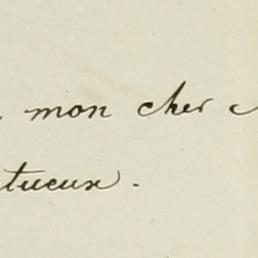 mon cher
tueux.